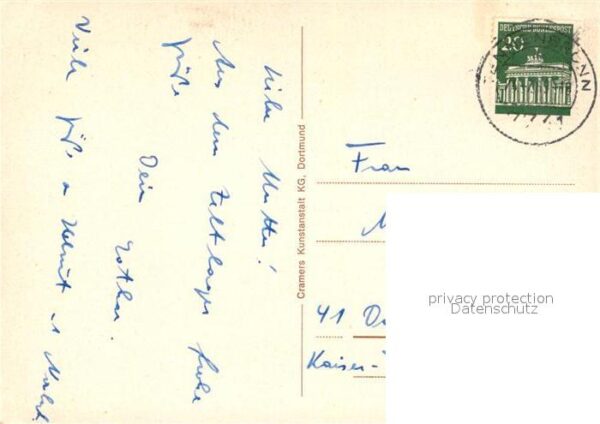 Liebe Mutter!
Aus dem Zeltlager frohe
Grüße
Dein Lothar.
Viele Grüße a Helmut u
Cramers Kunstanstalt KG, Dortmund
DEUTSCHE BUNDESPOST
20
Frau
M
41 Du
Kaiser-
privacy protection
Datenschutz